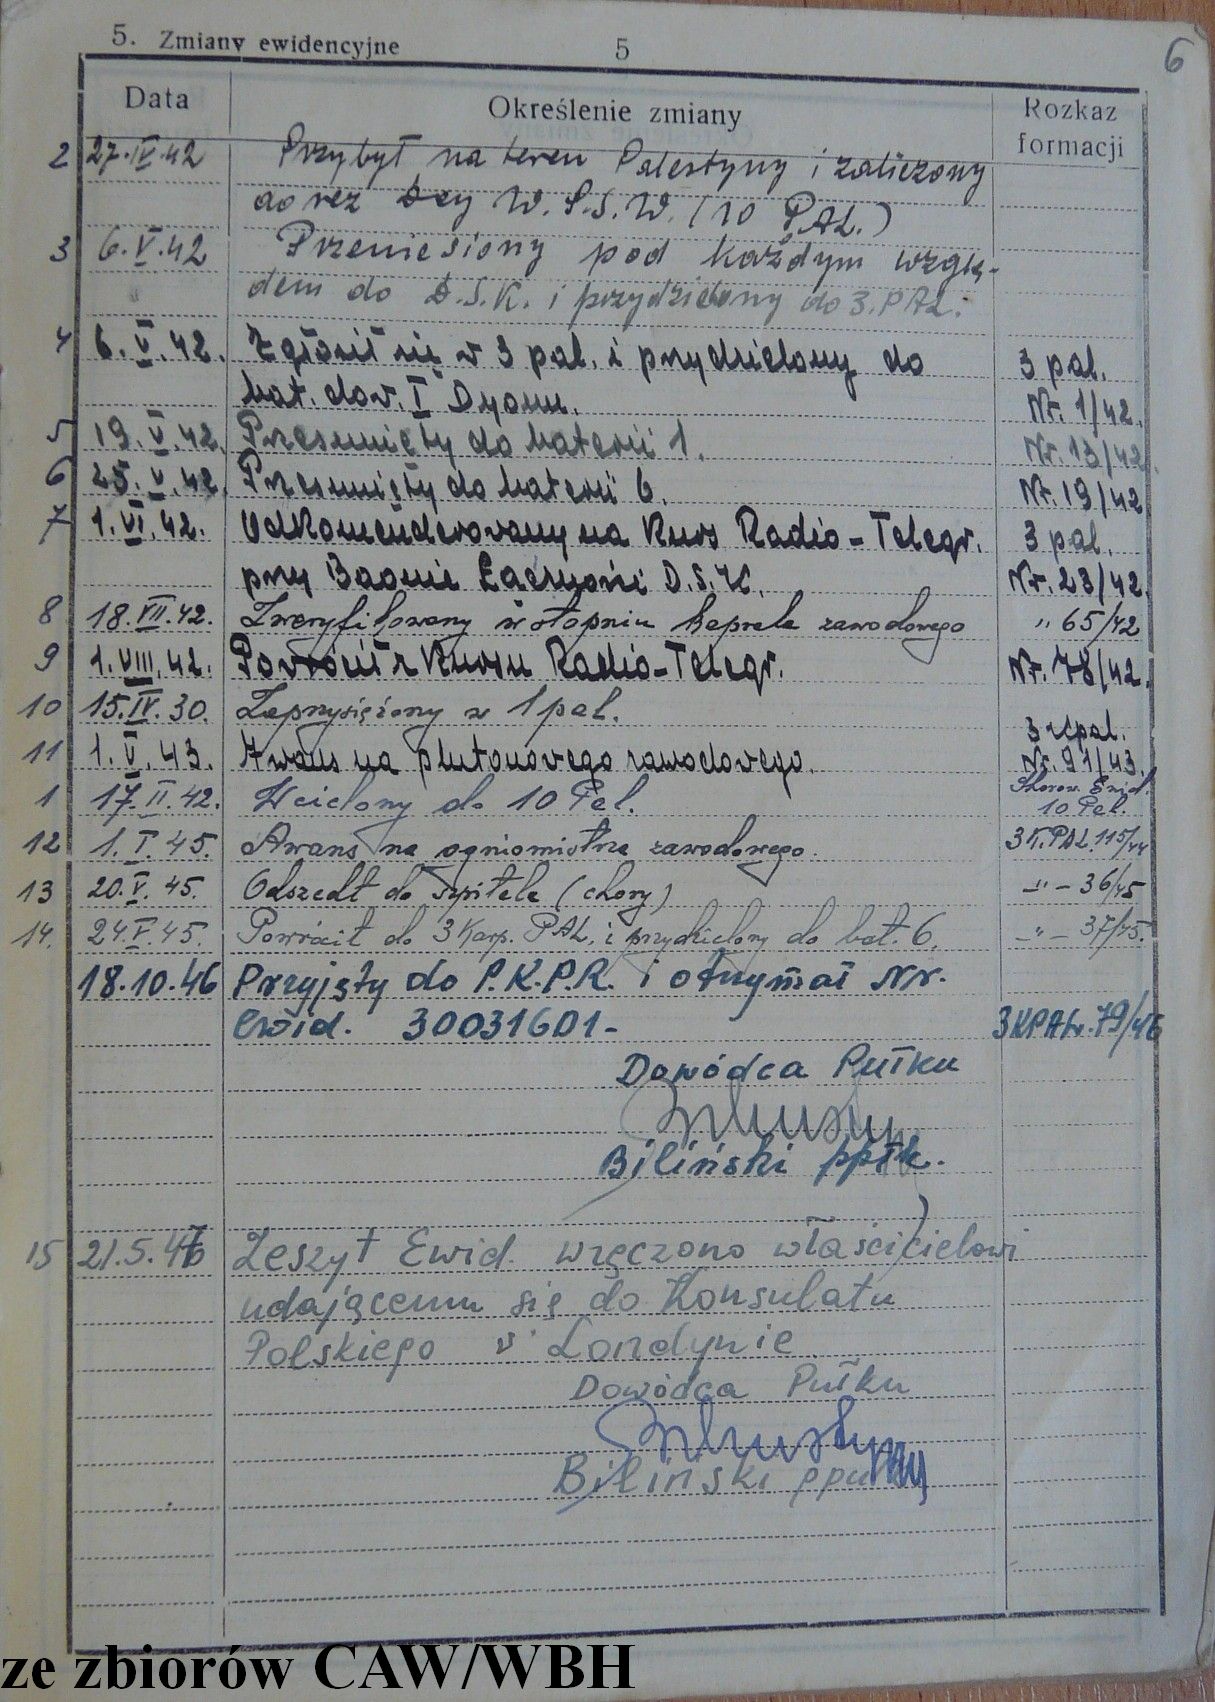 5. Zmiany ewidencyjne 5 6
Data Określenie zmiany Rozkaz formacji
2 27.IV.42 Przybył na teren Palestyny i zaliczony
do rez Dcy W.S.W. (10 PAL.)
3 6.V.42 Przeniesiony pod każdym wzglę-
dem do D.S.K. i przydzielony do 3. PAL.
4 6.V.42. Zgłosił się w 3 pal. i przydzielony do 3 pal.
bat. dow. I Dyonu. Nr. 1/42.
5 19.V.42. Przesunięty do baterii 1. Nr. 13/42.
6 25.V.42. Przesunięty do baterii 6. Nr. 19/42
7 1.VI.42. Odkomenderowany na Kurs Radio-Telegr. 3 pal.
przy Baonie Łączności D.S.K. Nr. 23/42.
8 18.VII.42. Zweryfikowany w stopniu kaprala zawodowego " 65/42
9 1.VIII.42. Powrócił z Kursu Radio-Telegr. Nr. 78/42.
10 15.IV.30. Zaprzysiężony w 1 pal.
3 kpal.
11 1.V.43. Awans na plutonowego zawodowego. Nr. 91/43.
1 17.II.42. Wcielony do 10 Pal. Ewid.
10 Pal.
12 1.I.45. Awans na ogniomistrza zawodowego. 3 K.PAL 115/44
13 20.V.45. Odszedł do szpitala (chory) -"- 36/45
14. 24.V.45. Powrócił do 3 Karp. PAL. i przydzielony do bat. 6. -"- 37/45.
18.10.46 Przyjęty do P.K.P.R. i otrzymał Nr.
Ewid. 30031601- 3 KPAL. 79/46
Dowódca Pułku
Biliński ppłk.
15 21.5.47 Zeszyt Ewid. wręczono właścicielowi
udającemu się do Konsulatu
Polskiego w Londynie
Dowódca Pułku
Biliński
ze zbiorów CAW/WBH